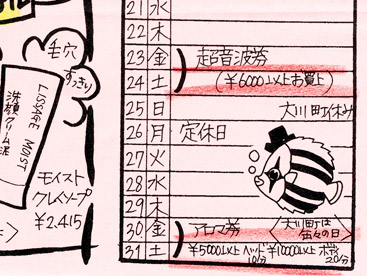 毛穴
すっきり
LISSAGE MOIST
洗顔クリーム
モイスト
クレイソープ
¥2.415
21 水
22 木
23 金
24 土
超音波券
(¥6000以上お買上)
25 日 大川町休み
26 月 定休日
27 火
28 水
29 木
30 金 アロマ券
大川町は
31 土 ¥5000以上 ヘッド10分 ¥10000以上 ボディ20分